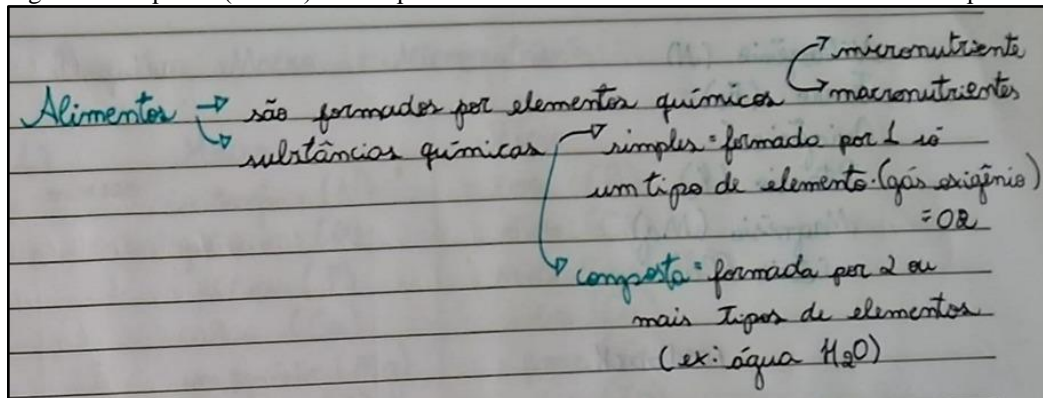 micronutriente
Alimentos → são formados por elementos químicos → macronutrientes
substâncias químicas → simples = formada por 1 só
um tipo de elemento. (gás oxigênio)
= O2
composta = formada por 2 ou
mais tipos de elementos
(ex: água H2O)